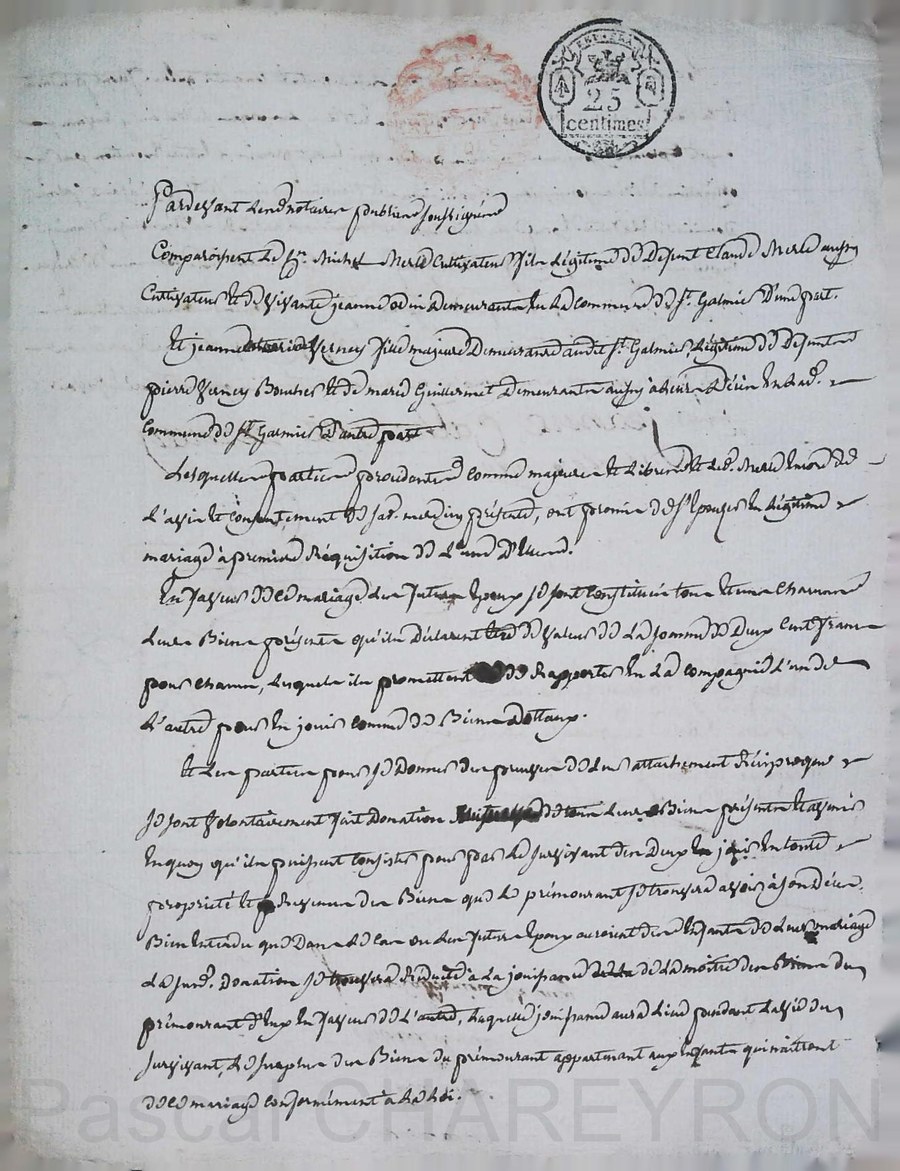 EMP. FRA.
25
centimes
Pardevant les notaires publics soussignés
Comparoissent le Sr. Michel Merle cultivateur fils légitime de defunt Claude Merle aussy
Cultivateur et de vivante jeanne odin demeurants en la commune de St. Galmier d'une part.
Et jeanne marie Verney fille majeure demeurante audit St. Galmier, légitime de defunt
pierre Verney et de marie Guillermet demeurante aussy à en lad.
Commune de St. Galmier d'autre part
Lesquelles parties procedantes comme majeures et libres et led. Merle encore de
l'avis et consentement de sad. mere icy présente, ont promis de s'épouser en légitime
mariage à premiere réquisition de l'une d'elles.
En faveur de ce mariage, les futurs époux se sont constitués tous et uns chacuns
leurs biens présents qu'ils déclarent être de valeur de la somme de deux cent francs
pour chacun, lesquels ils promettent de rapporter en la compagnie l'un de
l'autre pour en jouir comme de biens dottaux.
Et les parties pour se donner des preuves de leur attachement réciproque
se sont volontairement fait donation de tous leurs biens présents et avenir
en quoy qu'ils puissent consister pour par le survivant des deux en jouir en toute
propriété et revenus des biens que le prémourant se trouvera avoir à son décès.
Bien entendu que dans le cas ou les futurs époux auroient des enfants de leur mariage
la susd. donation se trouvera réduite à la jouissance de la moitié des biens du
prémourant d'eux en faveur de l'autre, laquelle jouissance aura lieu pendant la vie du
survivant, le surplus des biens du prémourant appartenant aux enfants qui naîtront
de ce mariage conformément à la loi.
Pascal CHAREYRON